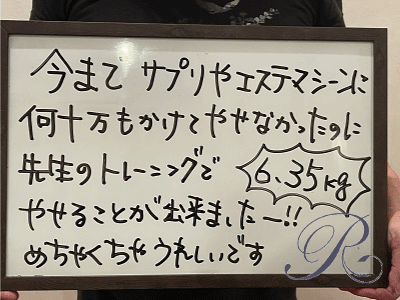 今まで サプリやエステマシーンに
何十万もかけてやせなかったのに
先生のトレーニングで 6.35kg
やせることが出来ましたー!!
めちゃくちゃうれしいです
R